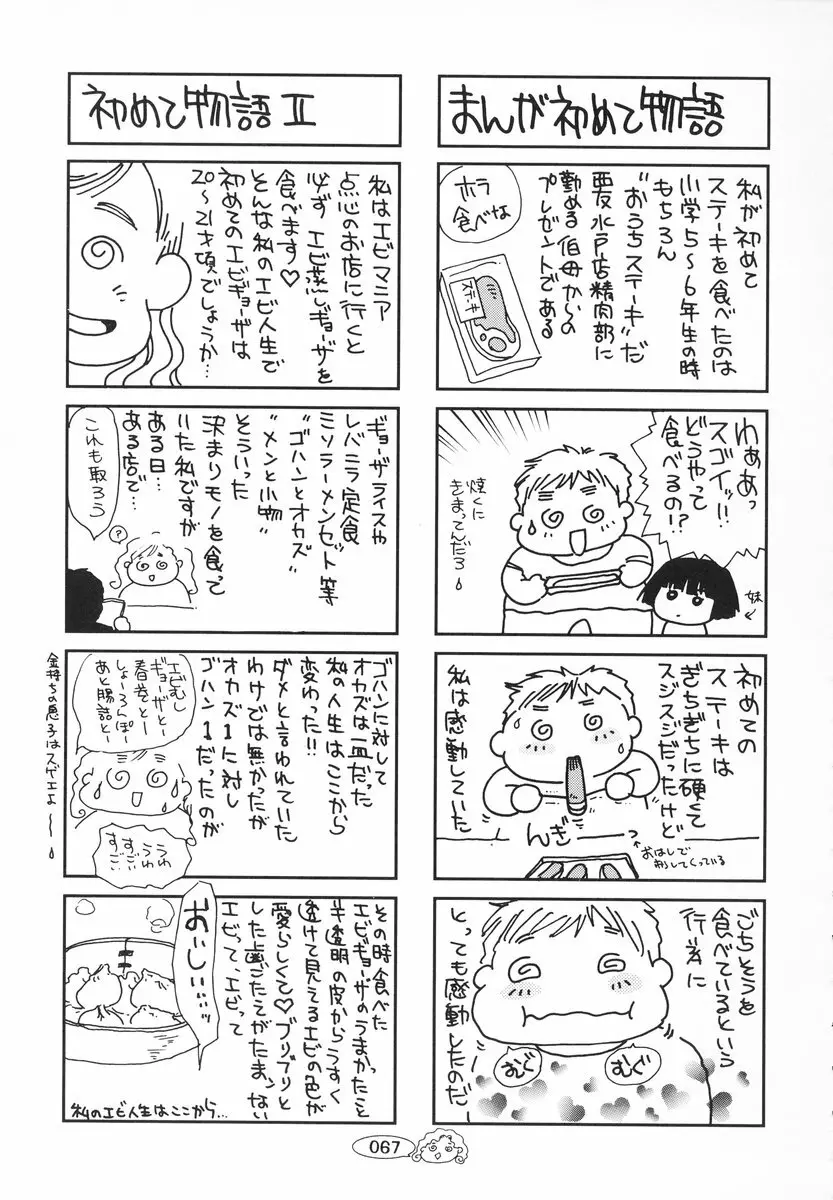 まんが初めて物語
私が初めて
ステーキを食べたのは
小学5〜6年生の時
もちろん
"おうちステーキ"だ
西友水戸店精肉部に
勤める伯母からの
プレゼントである
ホラ
食べな
ステーキ
わぁあっ
スゴイッ!!
どうやって
食べるの!?
焼くに
きまってんだろ
妹
初めての
ステーキは
ぎちぎちに硬くて
スジスジだったけど
私は感動していた
んぎーーっ
おはしで
刺してくっている
ごちそうを
食べているという
行為に
とっても感動したのだ
むぐ
むぐ
初めて物語 II
私はエビマニア
点心のお店に行くと
必ずエビ蒸しギョーザを
食べます♡
そんな私のエビ人生で
初めてのエビギョーザは
20〜21才頃でしょうか…
ギョーザライスや
レバニラ定食
ミソラーメンセット等
"ゴハンとオカズ"
"メンと小物"
そういった
決まりモノを食って
いた私ですが
ある日…
ある店で…
これも取ろう
?
ゴハンに対して
オカズは一皿だった
私の人生はここから
変わった!!
ダメと言われていた
わけでは無かったが
オカズ1に対し
ゴハン1だったのが
エビむし
ギョーザとー
春巻とー
しょーろんぽー
あと腸詰とー
うわ
うわ
すごい
すごい
金持ちの息子はスゲエよ〜
その時食べた
エビギョーザのうまかったこと
半透明の皮からうすく
透けて見えるエビの色が
愛らしくて♡プリプリと
した歯ごたえがたまんない
エビって、エビって
おいしい…
私のエビ人生はここから…
067